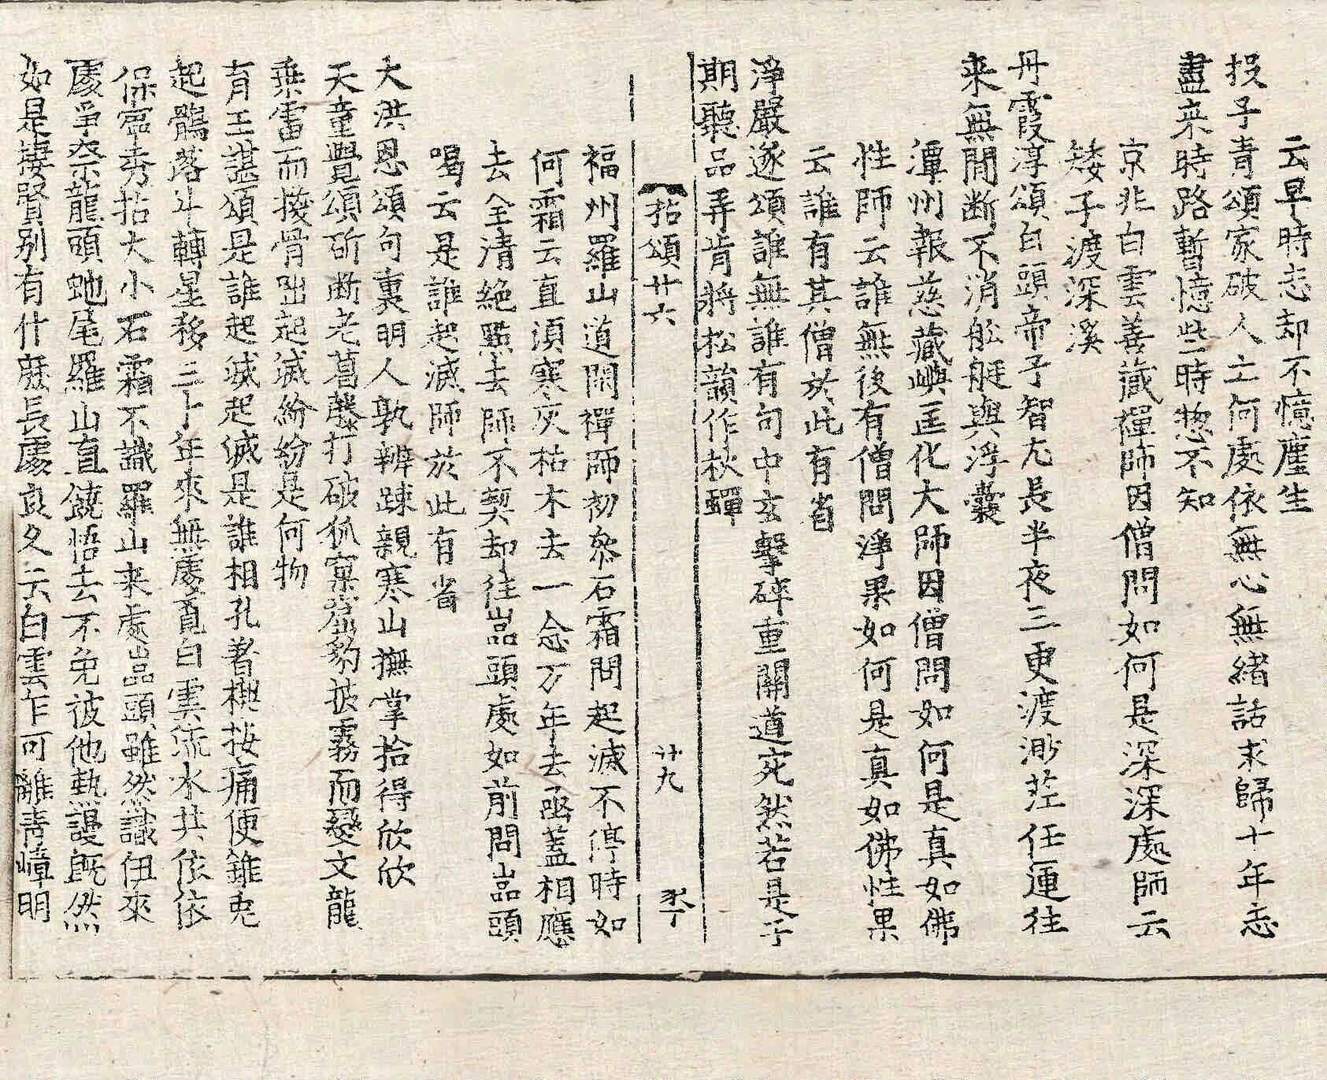 云早時忘却不憶塵生
投子青頌家破人亡何處依無心無緒話求歸十年忘
盡来時路暫憶些時惣不知
京兆白雲善藏禪師因僧問如何是深深處師云
矮子渡深溪
丹霞淳頌白頭帝子智尤長半夜三更渡渺茫任運往
来無間斷不消舩艇與浮囊
潭州報慈藏嶼匡化大師因僧問如何是真如佛
性師云誰無後有僧問淨果如何是真如佛性果
云誰有其僧於此有省
淨嚴遂頌誰無誰有句中玄擊碎重關道宛然若是子
期聽品弄肯將松韻作秋蟬
拈頌廿六 廿九
福州羅山道閑禪師初叅石霜問起滅不停時如
何霜云直須寒灰枯木去一念万年去函盖相應
去全清絶點去師不契却往嵓頭處如前問嵓頭
喝云是誰起滅師於此有省
大洪恩頌句裏明人孰辨踈親寒山撫掌拾得欣欣
天童覺頌斫断老葛藤打破狐窠窟豹披霧而變文龍
乗雷而換骨咄起滅紛紛是何物
育王諶頌是誰起滅起滅是誰相孔著楔按痛便錐兎
起鶻落斗轉星移二十年來無處覓白雲流水共依依
保寧秀拈大小石霜不識羅山来處嵓頭雖然識伊來
處爭奈龍頭虵尾羅山直饒悟去不免被他熱謾旣然
如是棲賢别有什麽長處良久云白雲乍可離青嶂明